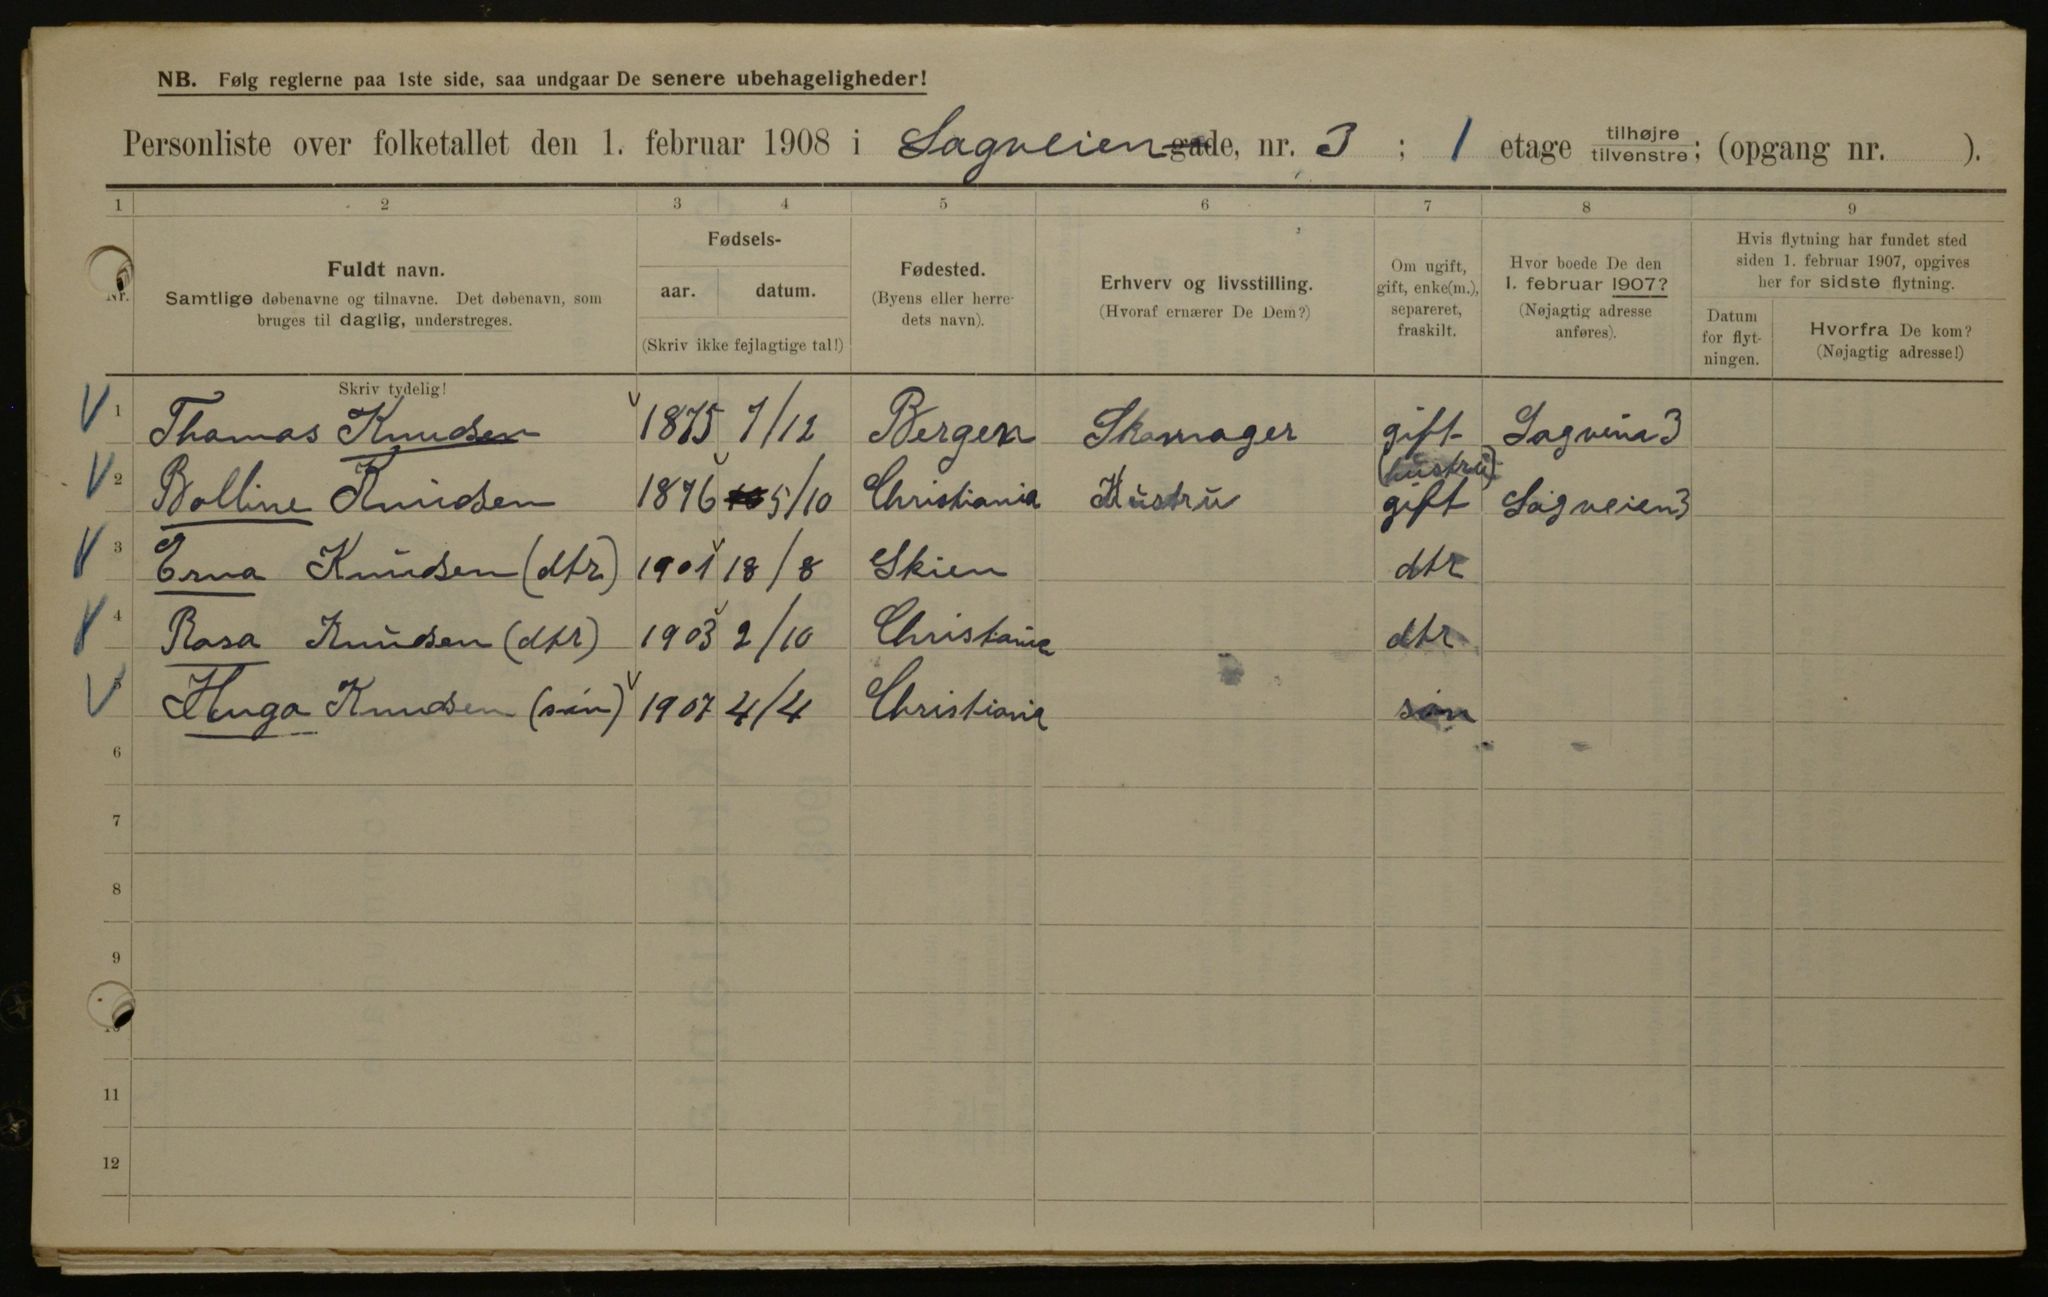 NB. Følg reglerne paa 1ste side, saa undgaar De senere ubehageligheder!
Personliste over folketallet den 1. februar 1908 i Sagveien gade, nr. 3 ; 1 etage tilhøjre tilvenstre; (opgang nr. ).
1 2 3 4 5 6 7 8 9
Nr.
Fuldt navn.
Samtlige døbenavne og tilnavne. Det døbenavn, som
bruges til daglig, understreges.
Skriv tydelig!
Fødsels-
aar. datum.
(Skriv ikke fejlagtige tal!)
Fødested.
(Byens eller herre-
dets navn).
Erhverv og livsstilling.
(Hvoraf ernærer De Dem?)
Om ugift,
gift, enke(m.),
separeret,
fraskilt.
Hvor boede De den
1. februar 1907?
(Nøjagtig adresse
anføres).
Hvis flytning har fundet sted
siden 1. februar 1907, opgives
her for sidste flytning.
Datum
for flyt-
ningen.
Hvorfra De kom?
(Nøjagtig adresse!)
1 Thomas Knudsen 1875 7/12 Bergen Skomager gift Sagveien 3
2 Bolline Knudsen 1876 5/10 Christiania Hustru (hustru) gift Sagveien 3
3 Erna Knudsen (dtr) 1901 18/8 Skien dtr
4 Rosa Knudsen (dtr) 1903 2/10 Christiania dtr
5 Hugo Knudsen (søn) 1907 4/4 Christiania søn
6
7
8
9
10
11
12